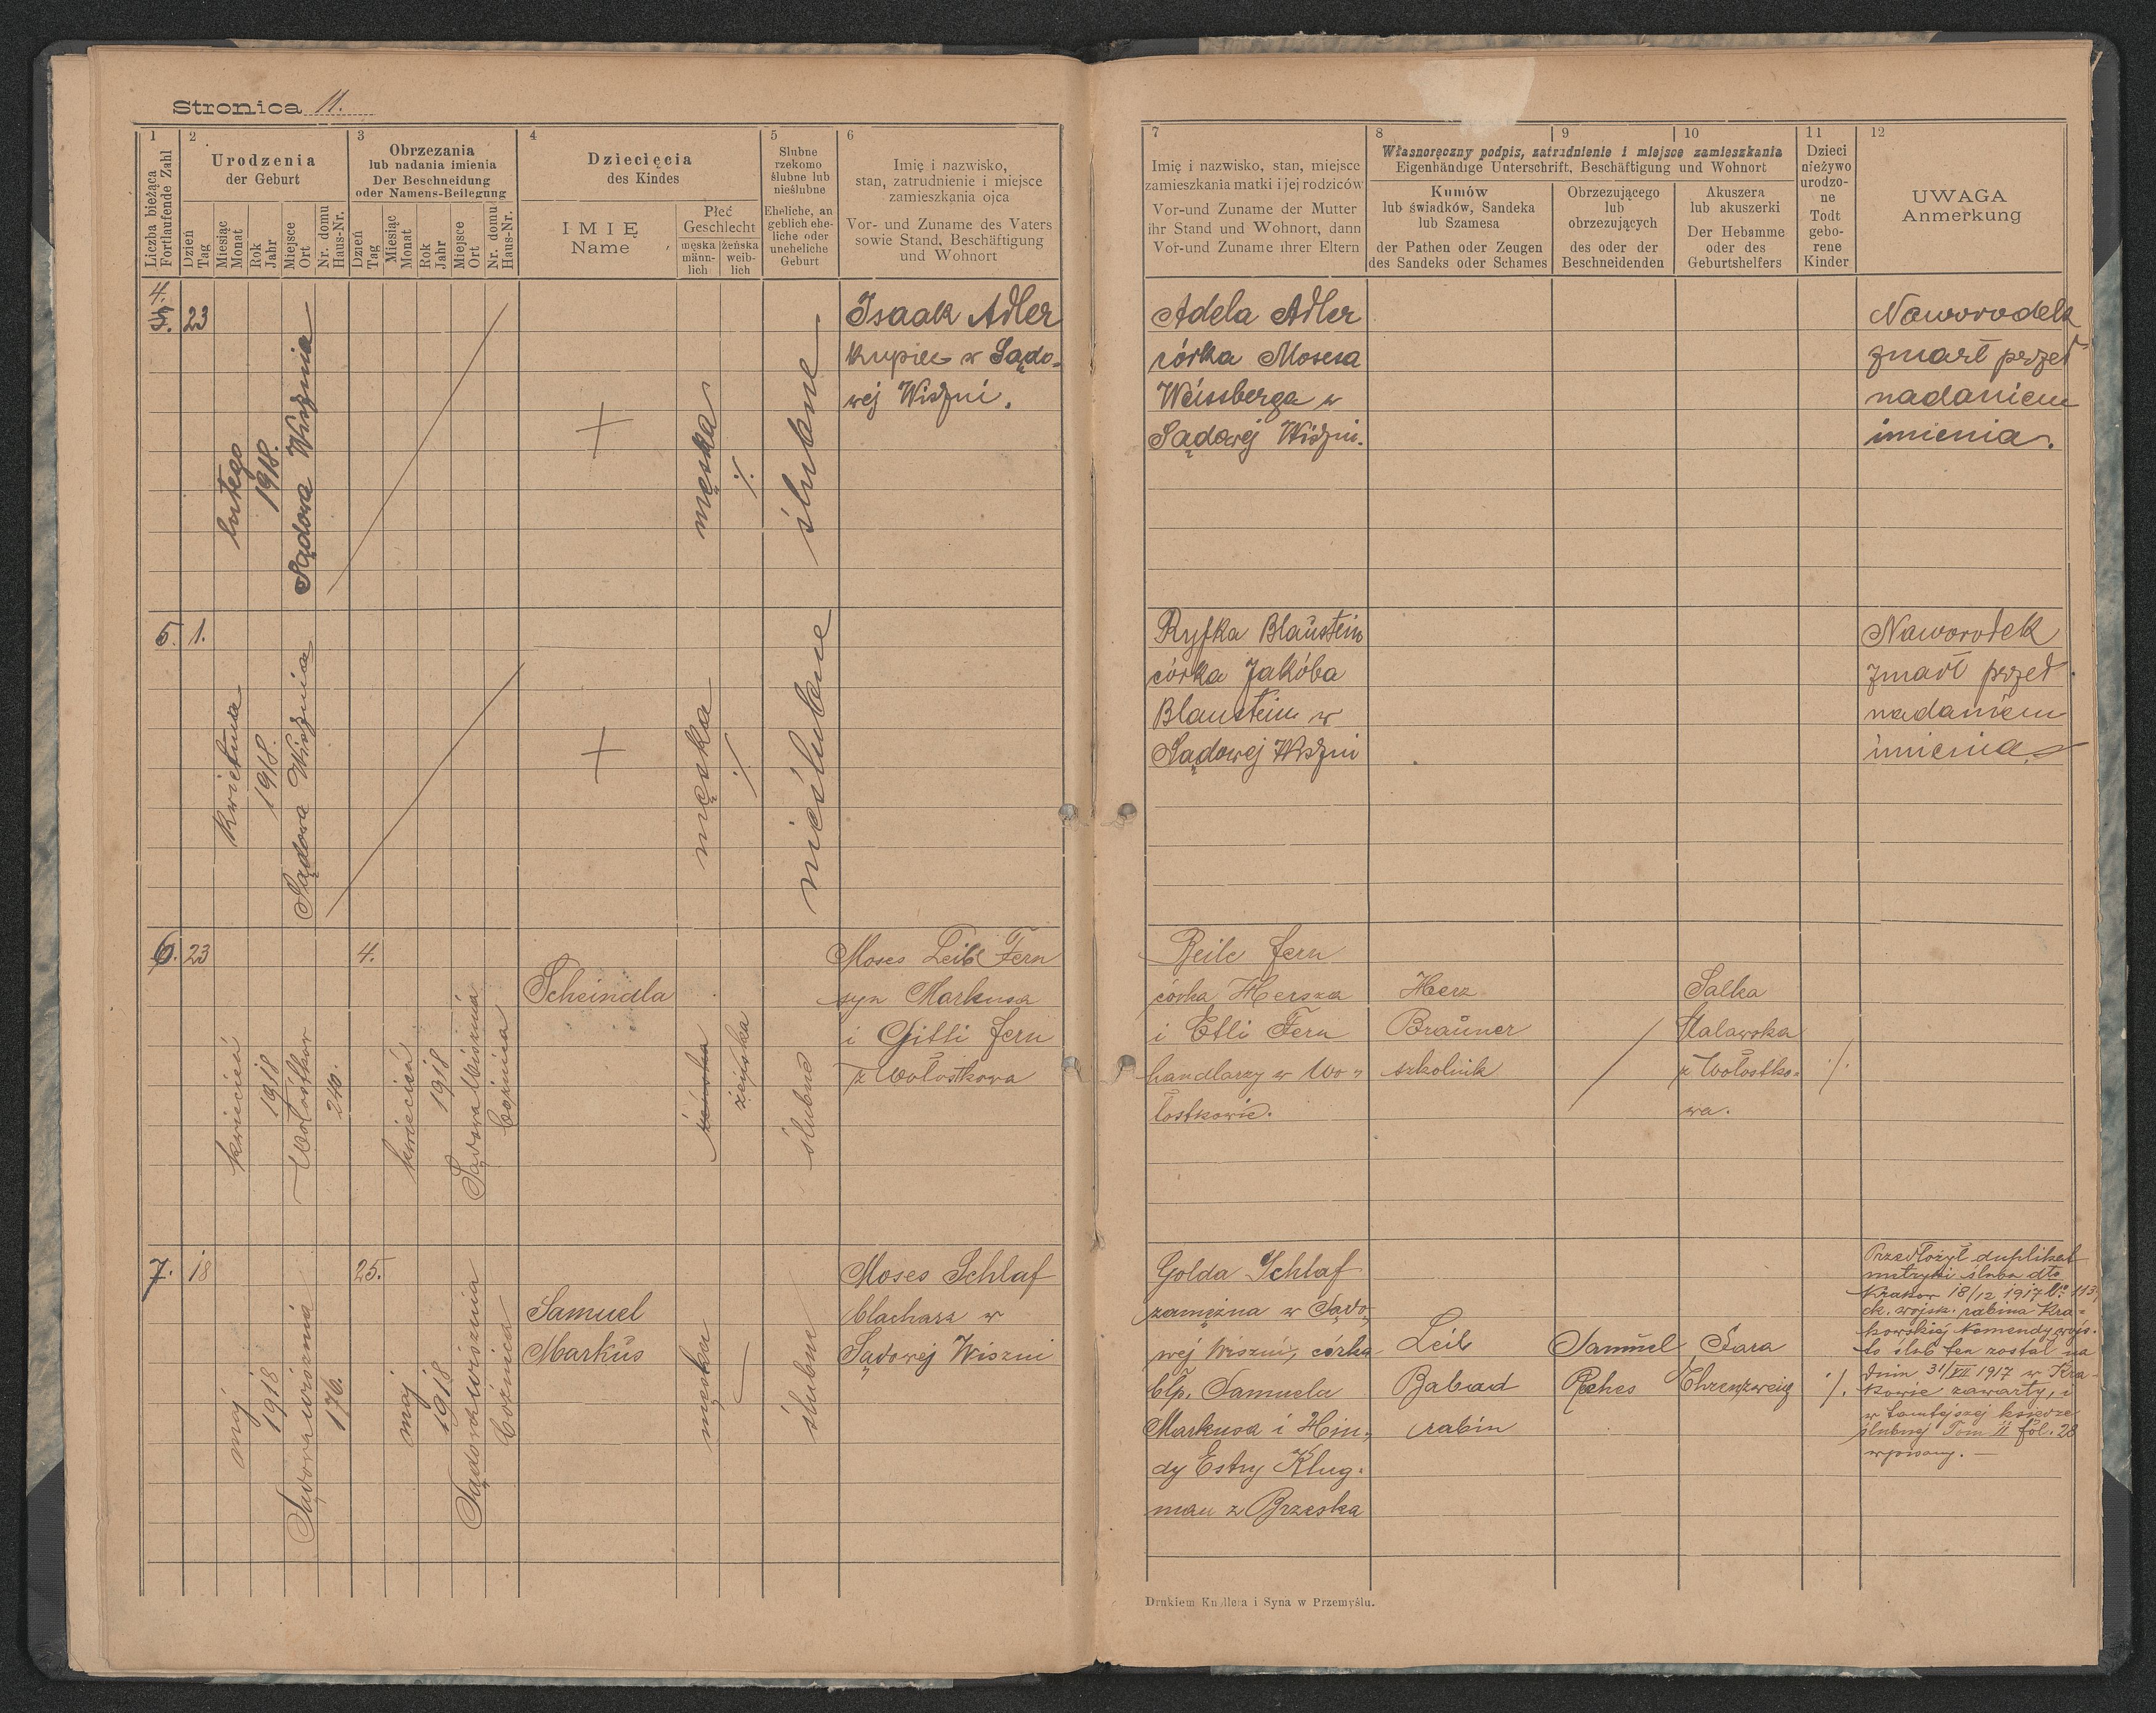 Stronica 11.
1
Liczba bieżąca
Fortlaufende Zahl
2
Urodzenia
der Geburt
Dzień
Tag
Miesiąc
Monat
Rok
Jahr
Miejsce
Ort
Nr. domu
Haus-Nr.
3
Obrzezania
lub nadania imienia
Der Beschneidung
oder Namens-Beilegung
Dzień
Tag
Miesiąc
Monat
Rok
Jahr
Miejsce
Ort
Nr. domu
Haus-Nr.
4
Dziecięcia
des Kindes
IMIĘ
Name
Płeć
Geschlecht
męska
männ-
lich
żeńska
weib-
lich
5
Ślubne
rzekomo
ślubne lub
nieślubne
Eheliche, an
geblich ehe-
liche oder
uneheliche
Geburt
6
Imię i nazwisko,
stan, zatrudnienie i miejsce
zamieszkania ojca
Vor- und Zuname des Vaters
sowie Stand, Beschäftigung
und Wohnort
7
Imię i nazwisko, stan, miejsce
zamieszkania matki i jej rodziców
Vor-und Zuname der Mutter
ihr Stand und Wohnort, dann
Vor-und Zuname ihrer Eltern
8
9
10
Własnoręczny podpis, zatrudnienie i miejsce zamieszkania
Eigenhändige Unterschrift, Beschäftigung und Wohnort
Kumów
lub świadków, Sandeka
lub Szamesa
der Pathen oder Zeugen
des Sandeks oder Schames
Obrzezującego
lub
obrzezujących
des oder der
Beschneidenden
Akuszera
lub akuszerki
Der Hebamme
oder des
Geburtshelfers
11
Dzieci
nieżywo
urodzo-
ne
Todt
gebo-
rene
Kinder
12
UWAGA
Anmerkung
4.
5.
23
lutego
1918.
Sądowa Wisznia
męska
ślubne
Isaak Adler
kupiec w Sądo=
wej Wiszni.
Adela Adler
córka Mosesa
Weissberga w
Sądowej Wiszni.
Naworodek
zmarł przed
nadaniem
imienia.
5.
1.
kwietnia
1918.
Sądowa Wisznia
męska
nieślubne
Ryfka Blaustein
córka Jakóba
Blaustein w
Sądowej Wiszni
Naworodek
zmarł przed
nadaniem
imienia.
6.
23
kwiecień
1918
Wołostkow
240.
4.
kwiecień
1918
Sądowa Wisznia
bożnica
Scheindla
żeńska
żeńska
ślubne
Moses Leib Fern
syn Markusa
i Gitli Fern
z Wołostkowa
Beile Fern
córka Hersza
i Etli Fern
handlarzy w Wo=
łostkowie.
Herz
Brauner
szkolnik
Salka
z Wołostko=
wa.
7.
18
maj
1918
Sądowa wisznia
176.
25.
maj
1918
Sądowa wisznia
bożnica
Samuel
Markus
męska
ślubne
Moses Schlaf
blacharz w
Sądowej Wiszni
Golda Schlaf
zamężna w Sądo=
wej Wiszni, córka
błp. Samuela
Markusa i Hin=
dy Estry Klug=
man z Brzeska
Leib
Babad
rabin
Samuel
Rehes
Sara
Ehrenzweig
Przedłożył duplikat
metryki ślubu dto
Krakow 18/12 1917 L: 113
ck. wojsk. rabina Kra=
kowskiej Komendy wojs.
że ślub ten został na
dniu 31/VII 1917 w Kra=
kowie zawarty, i
w tamtejszej księdze
ślubnej Tom II fol. 28
wpisany. —
Drukiem Knollera i Syna w Przemyślu.